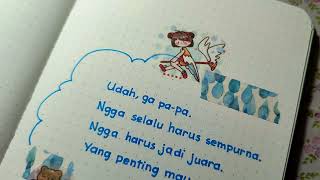 Udah, ga pa-pa.
Ngga selalu harus sempurna.
Ngga harus jadi juara.
Yang penting mau